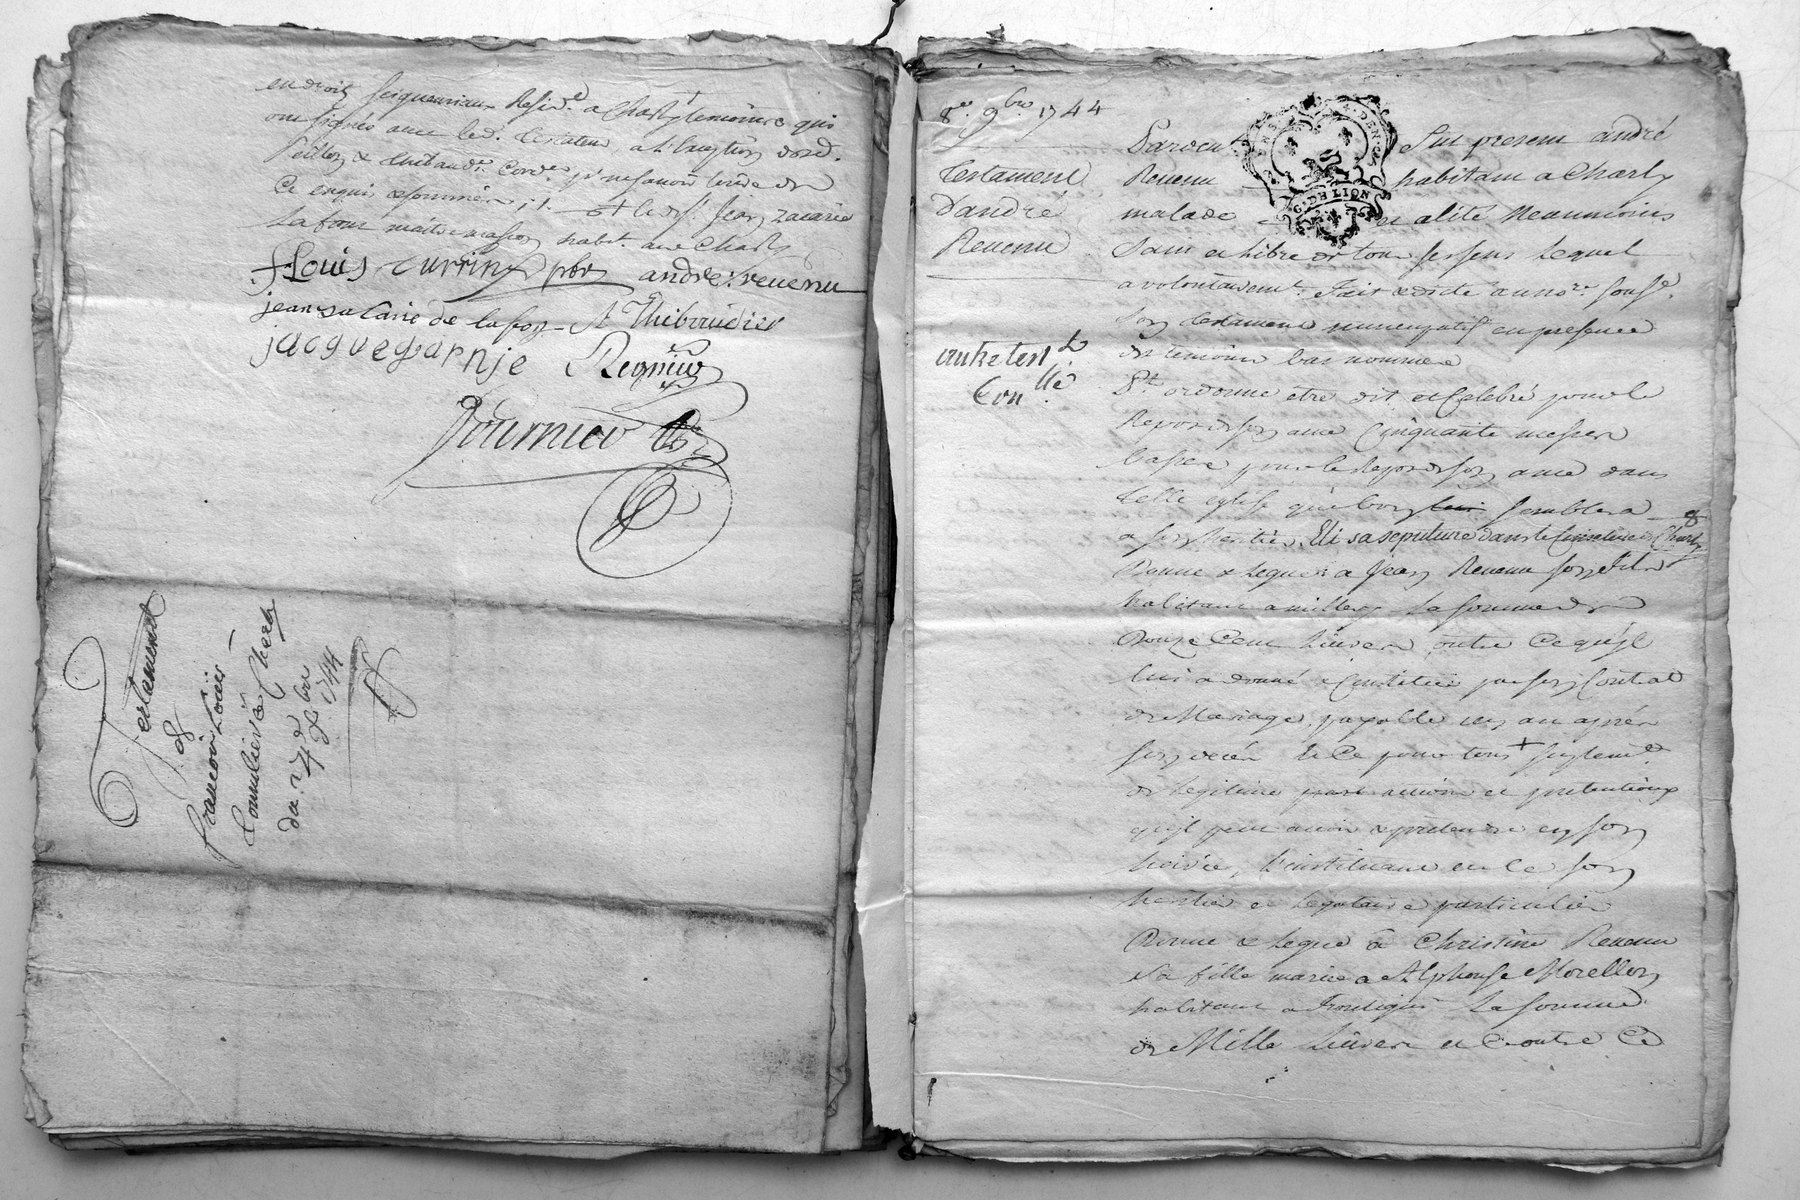 en droit seigneuriaux Resid.t a Charly temoins qui
ont signés avec led. testateur, a l'exception desd.
Ce enquis et sommés
led. s.r Jean Zacarie
Lafour habit. aud Charly
f Louis Turrin pbr andre revenu
jean sacarie de lafon A Thiboudier
jacque garnje Regniu
Fournier
Testament
de
francois Loüis
Coûmlier de Charly
du 24 de 8bre
1744
8e. 9bre 1744
Testament
D'andré
Revenu
Con.llé
Pardevt. fut present andré
G. DE LION
Revenu habitant a Charly
malade alité Neanmoins
Sain et libre de tous ses sens Lequel
a volontairemt. fait et dicté a un no.re souss.é
son testament nuncupatif en presence
des temoins bas nommés
P.t ordonne être dit et Celebré pour le
Repos de son ame Cinquante messes
basses pour le Repos de son ame dans
telle eglise que bon semblera
a son heritier, Eli sa sepulture dans le Cimetiere de Charly
Donne & Legue a Jean Revenu son fils
habitant a millery La somme de
Douze Cent Livres outre Ce qu'il
lui a donné & Constitué par son Contrat
de Mariage, payable un an aprés
son decés Et Ce pour tous + suplemt.
de Legitime part actions et pretentions
qu'il peut avoir & pretendre en son
hoirie, L'instituant en Ce son
heritier et Legataire particulier
Donne & Legue a Christine Revenu
Sa fille mariée a Alphonse Morellon
habitant a La somme
de Mille Livres et Ce outre Ce